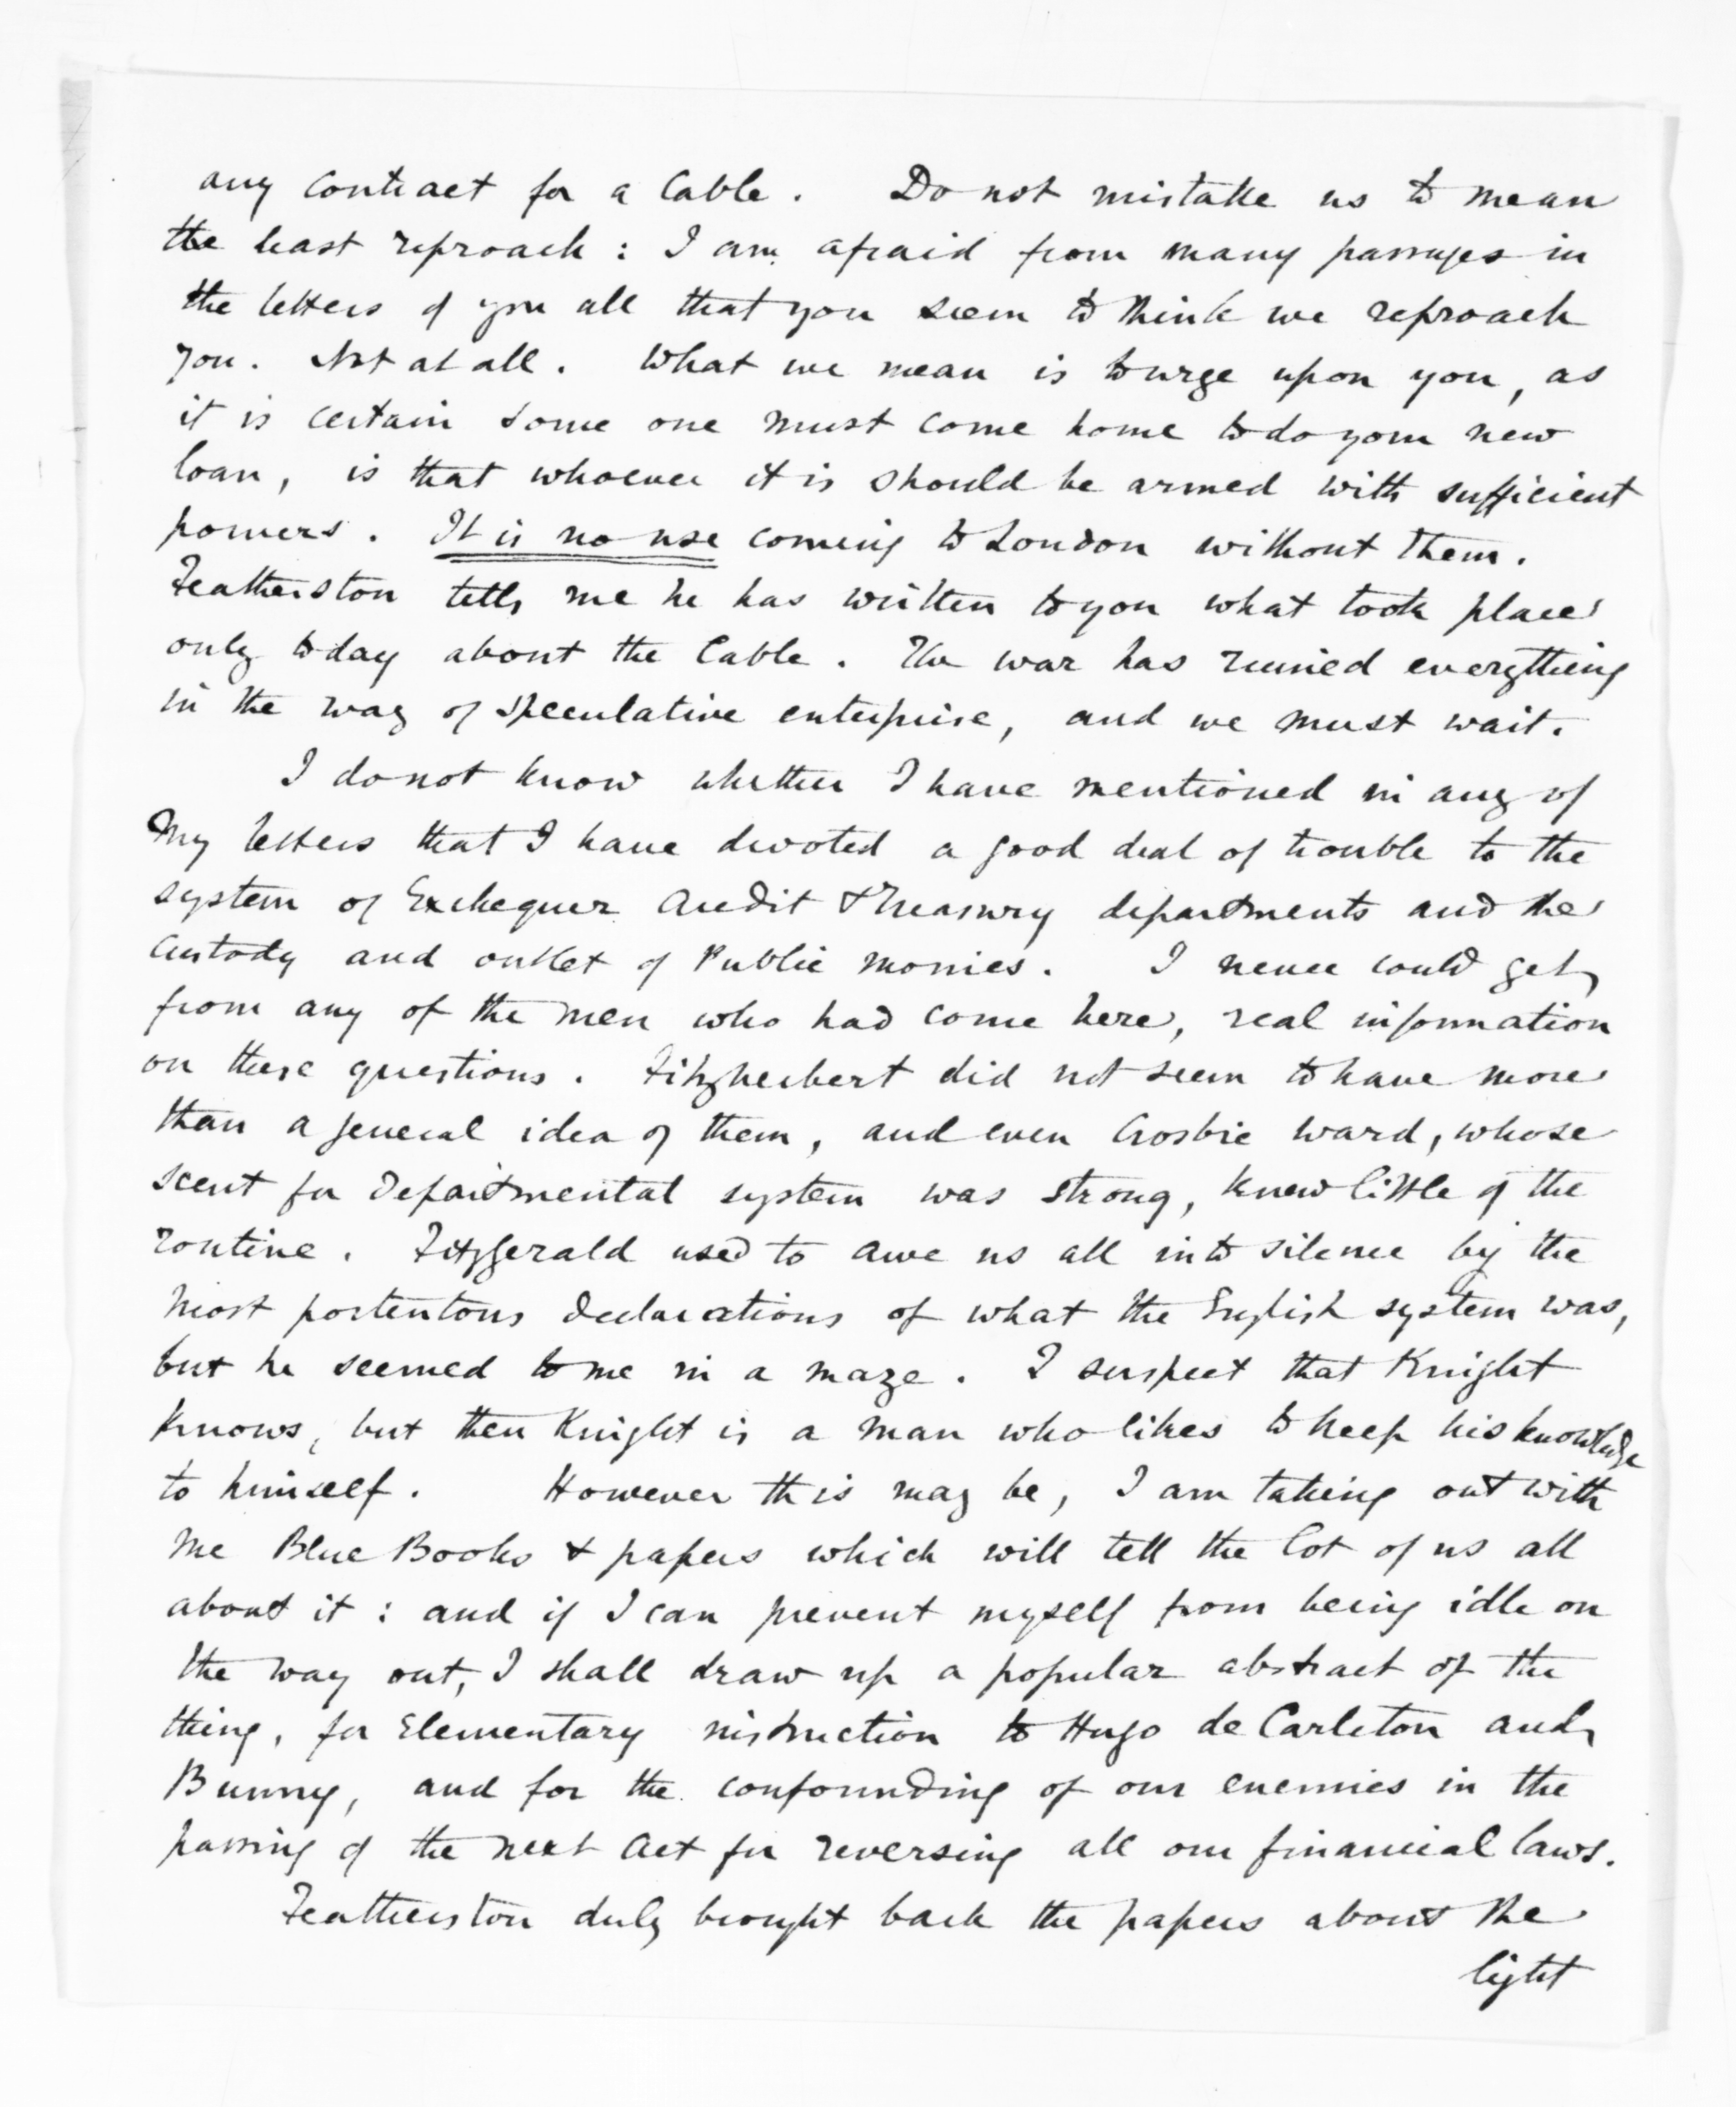 any contract for a Cable. Do not mistake us to mean
the least reproach: I am afraid from many passages in
the letters of you all that you seem to think we reproach
you. Not at all. What we mean is to urge upon you, as
it is certain some one must come home to do your new
loan, is that whoever it is should be armed with sufficient
powers. It is no use coming to London without them.
Featherston tells me he has written to you what took place
only today about the Cable. The war has ruined everything
in the way of speculative enterprise, and we must wait.
I do not know whether I have mentioned in any of
my letters that I have devoted a good deal of trouble to the
system of Exchequer Audit & Treasury departments and the
custody and outlet of Public monies. I never could get,
from any of the men who had come here, real information
on these questions. Fitzherbert did not seem to have more
than a general idea of them, and even Crosbie Ward, whose
scent for Departmental system was strong, knew little of the
routine. Fitzgerald used to awe us all into silence by the
most portentous declarations of what the English system was,
but he seemed to me in a maze. I suspect that Knight
knows, but then Knight is a man who likes to keep his knowledge
to himself. However this may be, I am taking out with
me Blue Books & papers which will tell the lot of us all
about it: and if I can prevent myself from being idle on
the way out, I shall draw up a popular abstract of the
thing, for Elementary instruction to Hugo de Carleton and
Bunny, and for the confounding of our enemies in the
passing of the next Act for reversing all our financial laws.
Featherston duly brought back the papers about the
light